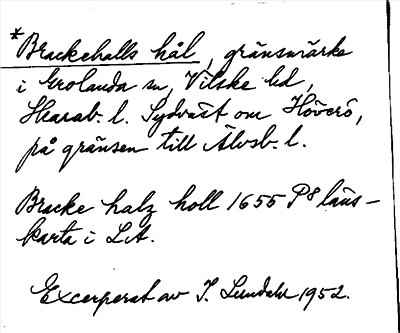 *Brackehalls hål, gränsmärke
i Grolanda sn, Vilske hd,
Skarab. l. Sydväst om Höverö,
på gränsen till Älvsb. l.
Bracke halz holl 1655 P8 läns-
karta i LA.
Excerperat av I. Lundahl 1952.